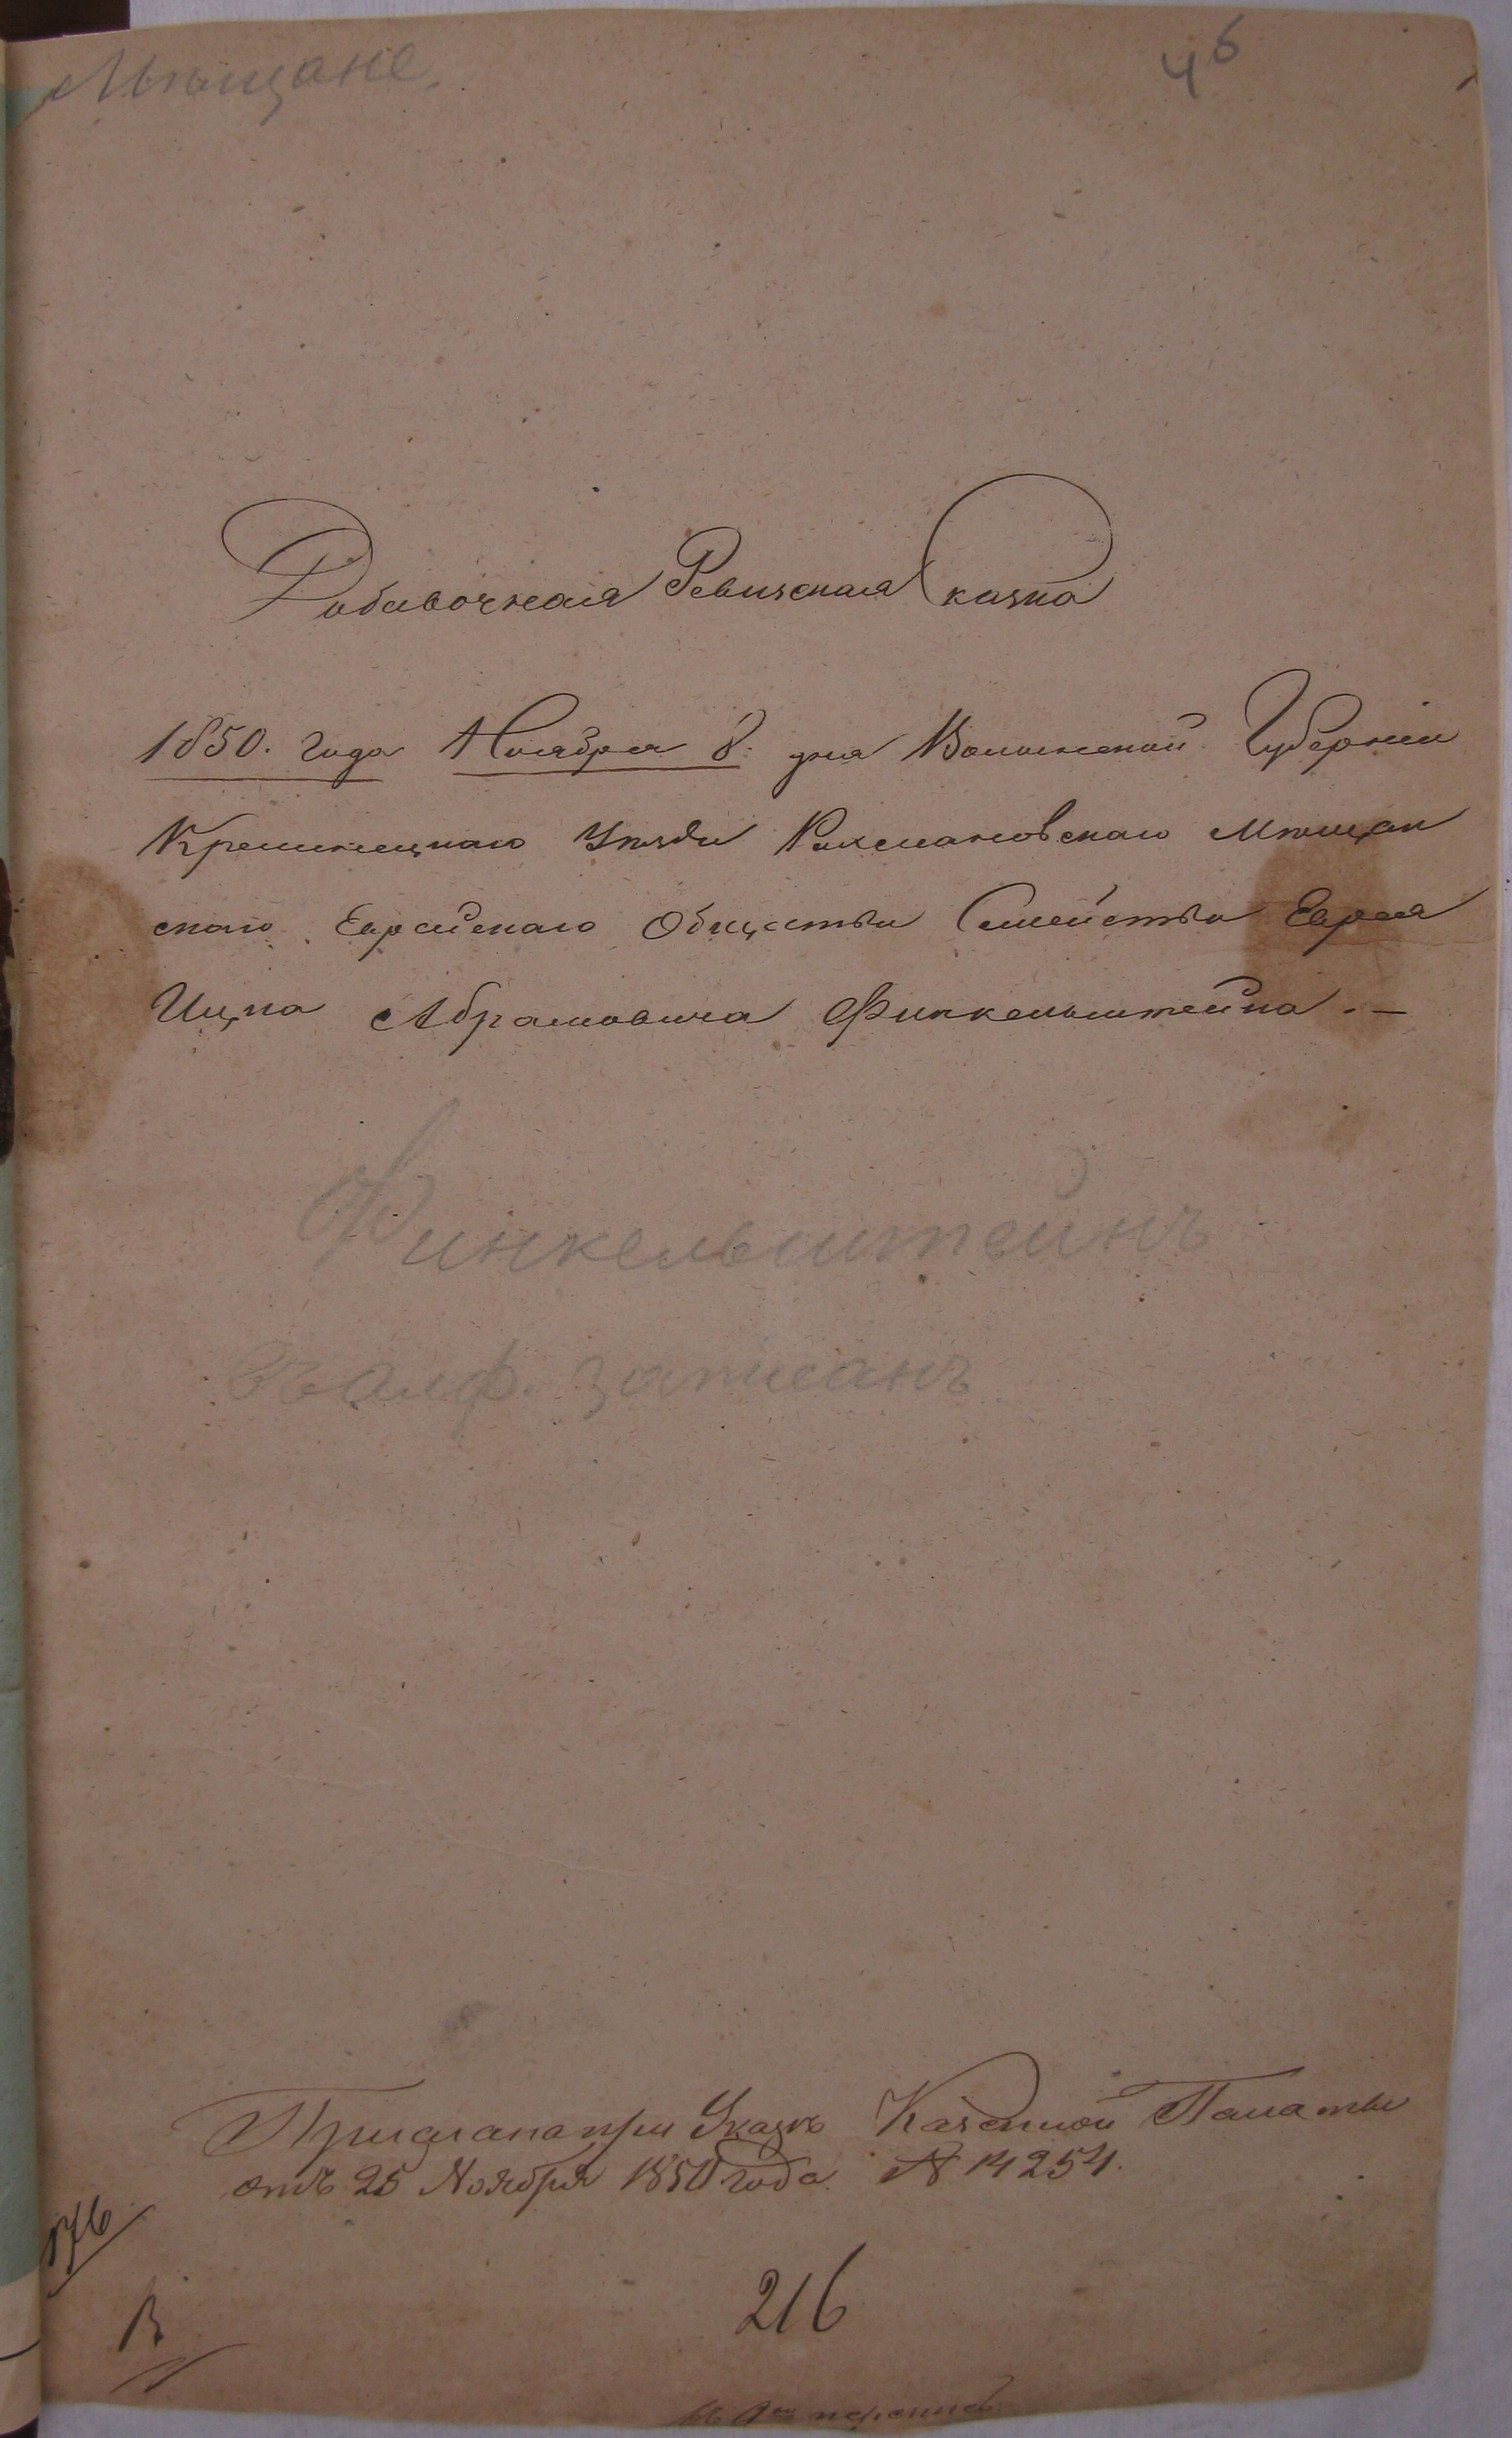 Мѣщане.
46
Добавочная Ревизская Сказка
1850. года Ноября 8. дня Волынской Губерніи
Кременецкаго Уѣзда Рахмановскаго Мѣщан
скаго Еврейскаго Общества Семейства Еврея
Ицка Абрамовича Финкельштейна. —
Финкельштейнъ
Въ алф. записанъ
Прислана при Указѣ Казенной Палаты
отъ 25 Ноября 1850 года № 14254.
176
216
В